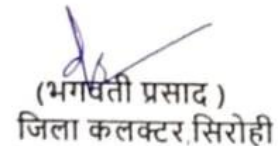 (भगवती प्रसाद )
जिला कलक्टर,सिरोही